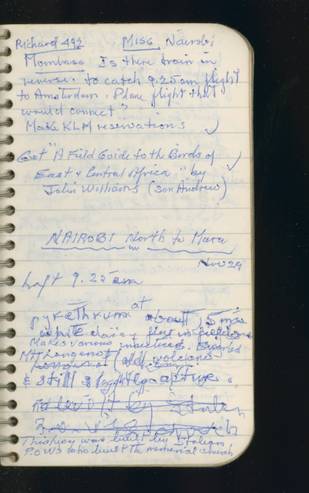 Richard 492 MISS Nairobi
Mombasa Is there train in
reverse to catch 9.25 am flight
to Amsterdam. Plane flight that
would connect?
Make KLM reservations
Get "A Field Guide to the Birds of
East & Central Africa" by
John Williams (son Andrew)
NAIROBI North to Mara
Nov 29
Left 9.25 am
at
pyrethrum about 5 mis
white daisy for insecticide
Makes various insecticides.
MT Longonot (old volcano
& still slightly active.
built by Italian
This way was built by Italian
P.O.Ws who built the memorial church